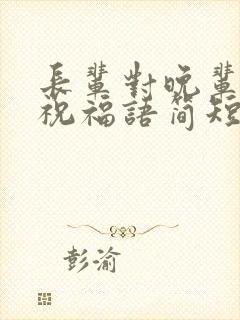 長輩對晚輩
祝福語简短
彭渝